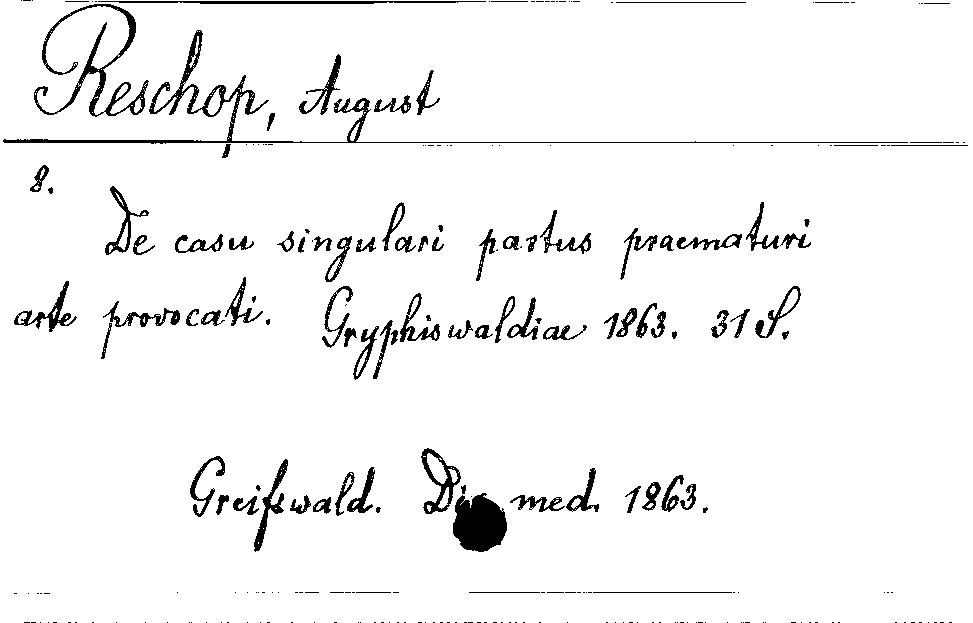 Reschop, August
8.
De casu singulari partus praematuri
arte provocati. Gryphiswaldiae 1863. 31 S.
Greifswald. med. 1863.